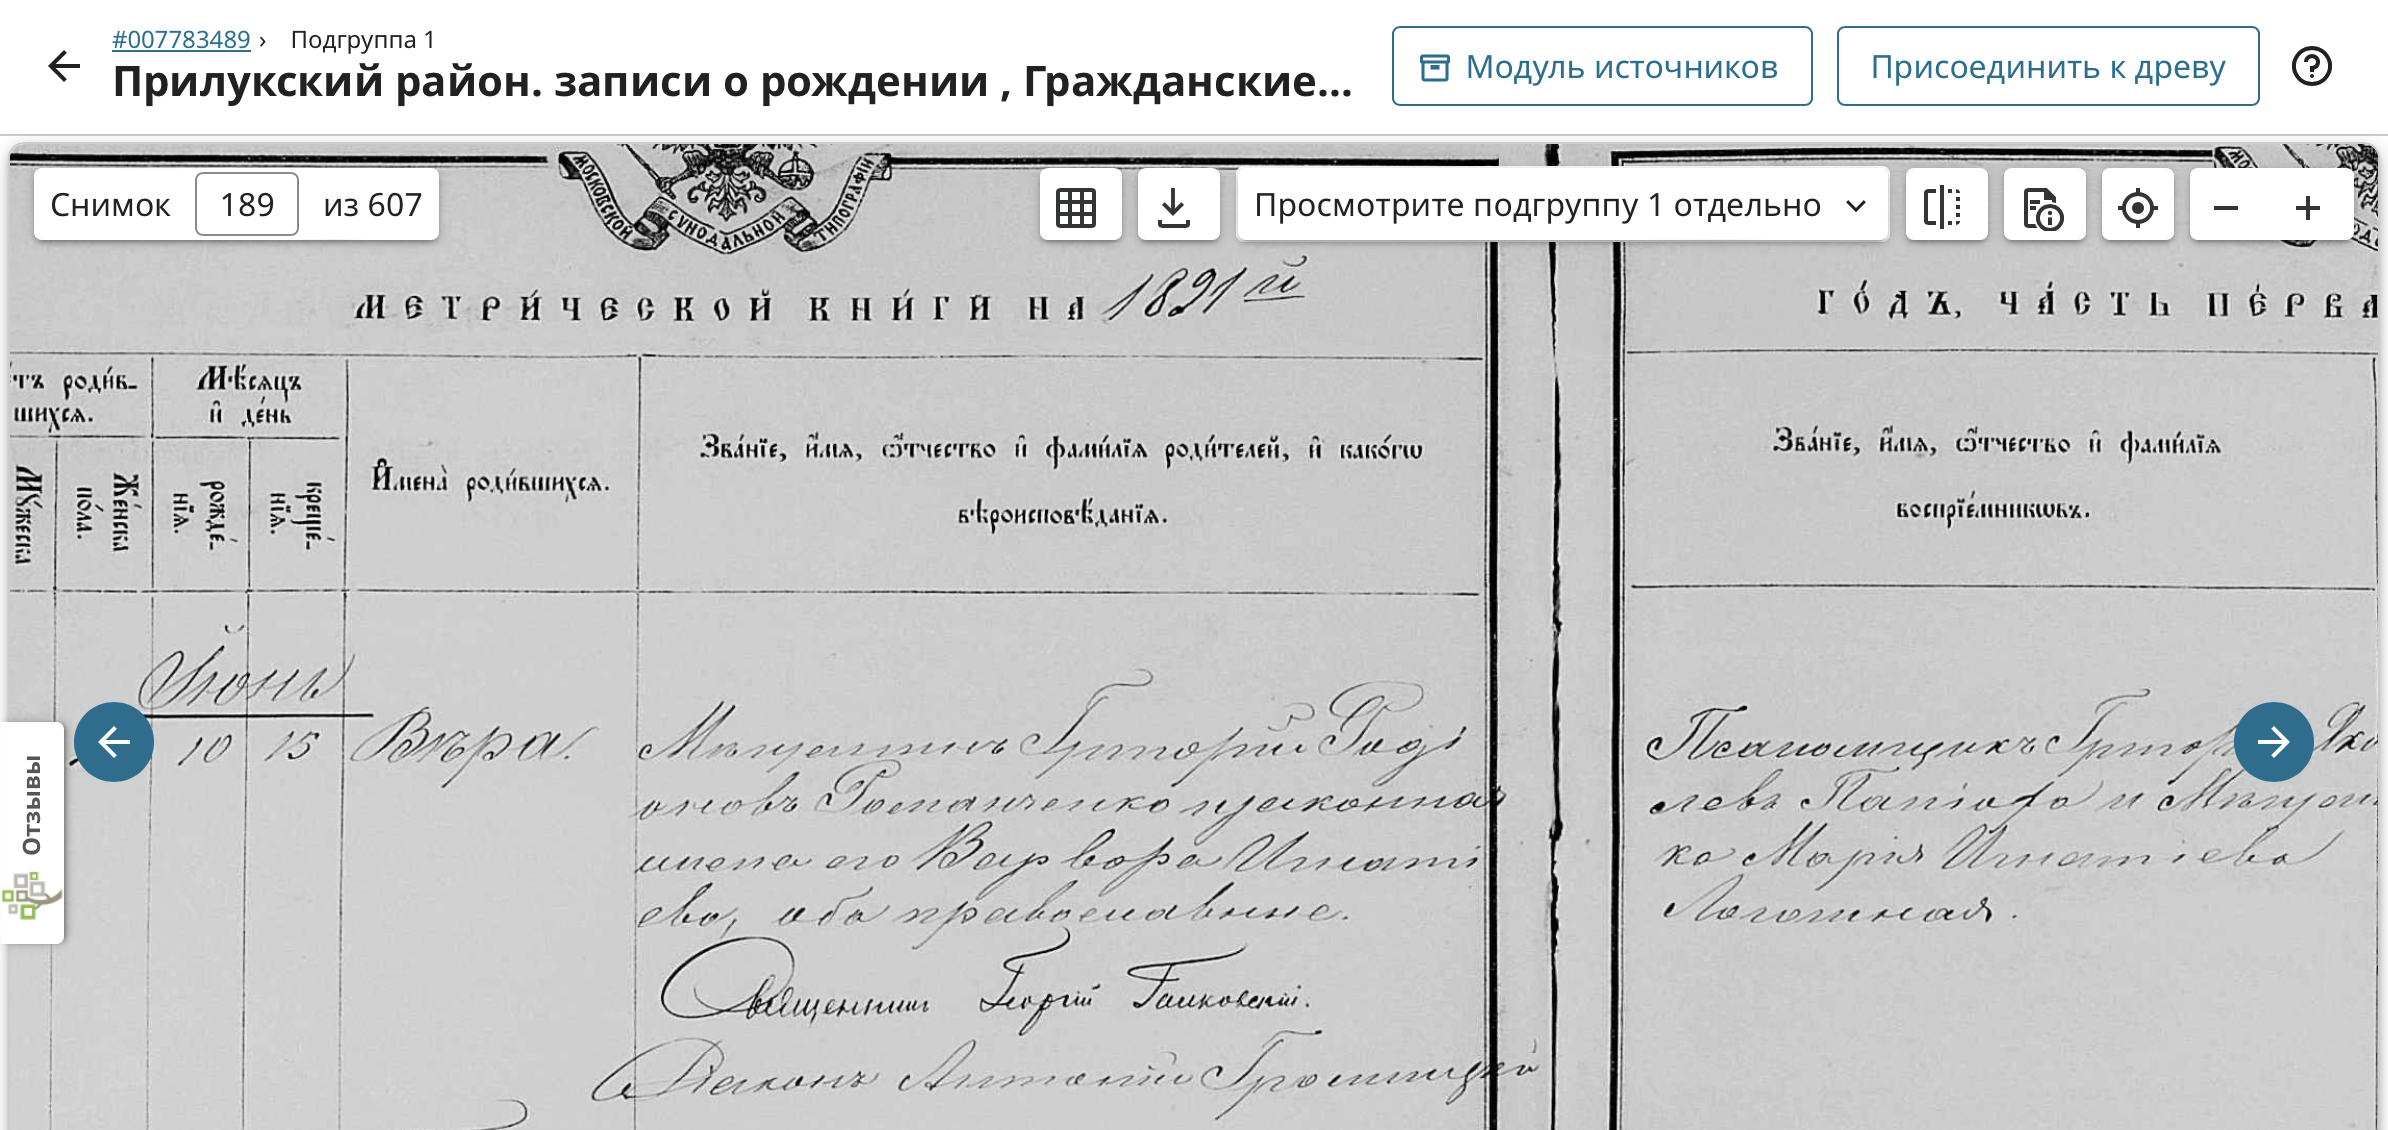 #007783489 › Подгруппа 1
Прилукский район. записи о рождении , Гражданские...
Модуль источников
Присоединить к древу
Снимок 189 из 607
Просмотрите подгруппу 1 отдельно
МОСКОВСКОЙ СѴНОДАЛЬНОЙ ТИПОГРАФІИ
МЕТРИ́ЧЕСКОЙ КНИ́ГИ НА 1891й
ГО́ДЪ, ЧА́СТЬ ПЕ́РВА
тъ роди́в-
шихсѧ.
Мѣ́сѧцъ
и҆ де́нь
Мꙋ́жеска
Же́нска
по́ла.
рожде́-
нїѧ.
креще́-
нїѧ.
И҆мена̀ роди́вшихсѧ.
Зва́нїе, и҆́мѧ, ѻ҆́тчество и҆ фами́лїѧ роди́телей, и҆ како́гѡ
вѣроисповѣ́данїѧ.
Зва́нїе, и҆́мѧ, ѻ҆́тчество и҆ фами́лїѧ
воспрїе́мникѡвъ.
Іюнь
10 15 Вѣра.
Мѣщанинъ Григорій Роді
оновъ Романченко и законная
жена его Варвара Игнаті
ева, оба православные.
Священникъ Георгій
Діаконъ Антоній
Псаломщикъ Григорій Яко
левъ и Мѣщан
ка Марія Игнатіева
Отзывы